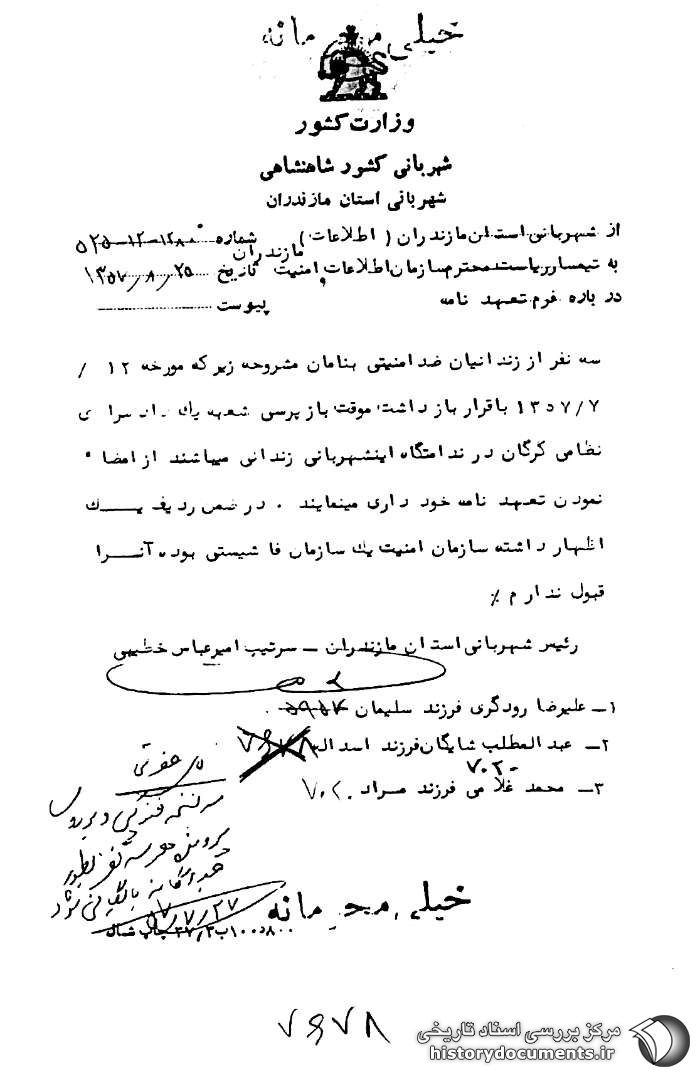 خیلی محرمانه
وزارت کشور
شهربانی کشور شاهنشاهی
شهربانی استان مازندران
از شهربانی استان مازندران ( اطلاعات ) شماره ۵۲۵-۱۲-۱۲۸۰
به تیمسار ریاست محترم سازمان اطلاعات و امنیت مازندران تاریخ ۱۳۵۷/۸/۲۵
در باره فرم تعهد نامه پیوست
سه نفر از زندانیان ضد امنیتی بنامان مشروحه زیر که مورخه ۱۲ /
۱۳۵۷/۷ با قرار بازداشت موقت بازپرسی شعبه یک دادسرای
نظامی گرگان در ندامتگاه اینشهربانی زندانی میباشند از امضاء
نمودن تعهد نامه خود داری مینمایند . در ضمن ردیف یک
اظهار داشته سازمان امنیت یک سازمان فاشیستی بوده آنرا
قبول ندارم ٪
رئیس شهربانی استان مازندران ـ سرتیپ امیرعباس خطیبی
۱ـ علیرضا رودگری فرزند سلیمان
۲ـ عبدالمطلب شایگان فرزند اسداله ۷۶۷۸
۷۰۲۰
۳ـ محمد غلامی فرزند مراد ۷۰۲۰
خیلی محرمانه
۷۶۷۸
مرکز بررسی اسناد تاریخی
historydocuments.ir